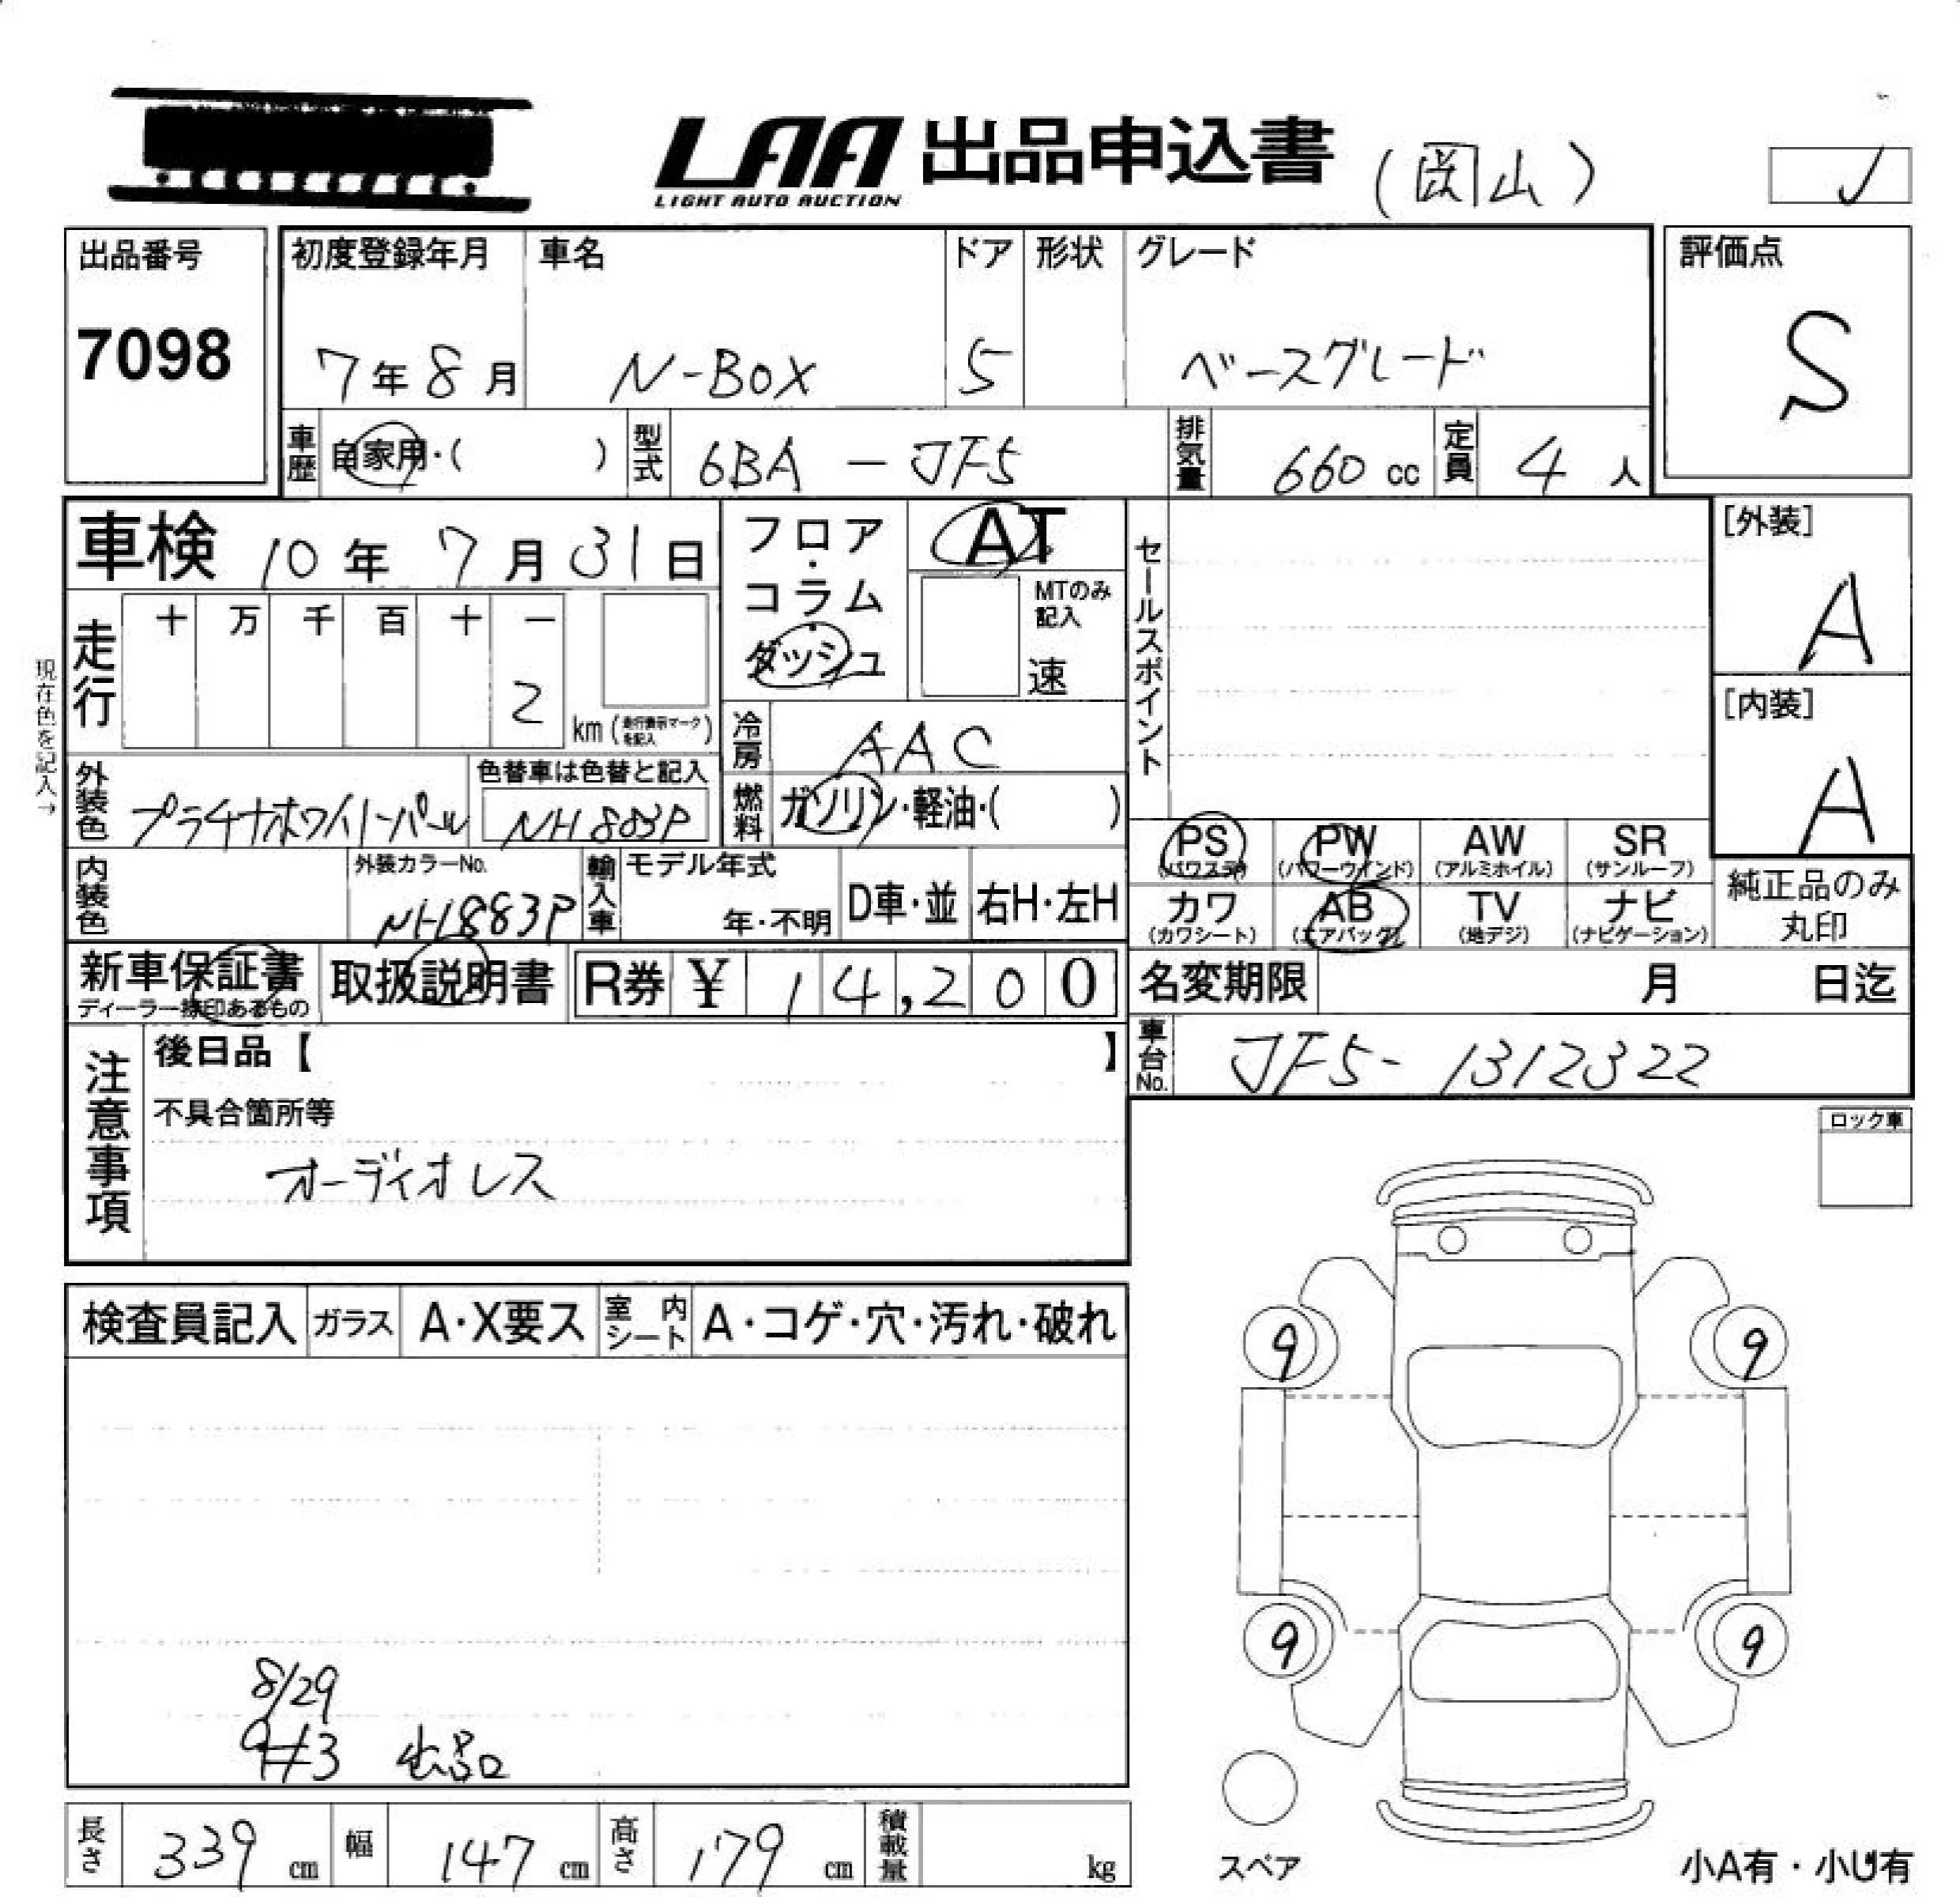 LAA 出品申込書 (岡山)
LIGHT AUTO AUCTION
出品番号
7098
初度登録年月 車名 ドア 形状 グレード
7年8月 N-BOX 5 ベースグレード
評価点
S
車歴 自家用・( ) 型式 6BA - JF5 排気量 660 cc 定員 4 人
車検 10年 7月 31日
フロア・コラム・ダッシュ
AT
MTのみ記入
速
セールスポイント
[外装]
A
[内装]
A
現在色を記入→
走行 十 万 千 百 十 一
2 km (走行表示マークを記入)
冷房 AAC
外装色 プラチナホワイトパール
色替車は色替と記入
NH883P
燃料 ガソリン・軽油・( )
PS (パワステ) PW (パワーウインド) AW (アルミホイル) SR (サンルーフ)
カワ (カワシート) AB (エアバック) TV (地デジ) ナビ (ナビゲーション)
純正品のみ丸印
内装色 外装カラーNo. NH883P
輸入車 モデル年式 年・不明 D車・並 右H・左H
新車保証書
ディーラー捺印あるもの
取扱説明書 R券 ¥ 14,200
名変期限 月 日迄
車台No. JF5-1312322
注意事項
後日品【 】
不具合箇所等
オーディオレス
ロック車
検査員記入 ガラス A・X要ス 室内シート A・コゲ・穴・汚れ・破れ
9 9
9 9
8/29
9#3 出品
長さ 339 cm 幅 147 cm 高さ 179 cm 積載量 kg
スペア
小A有・小U有